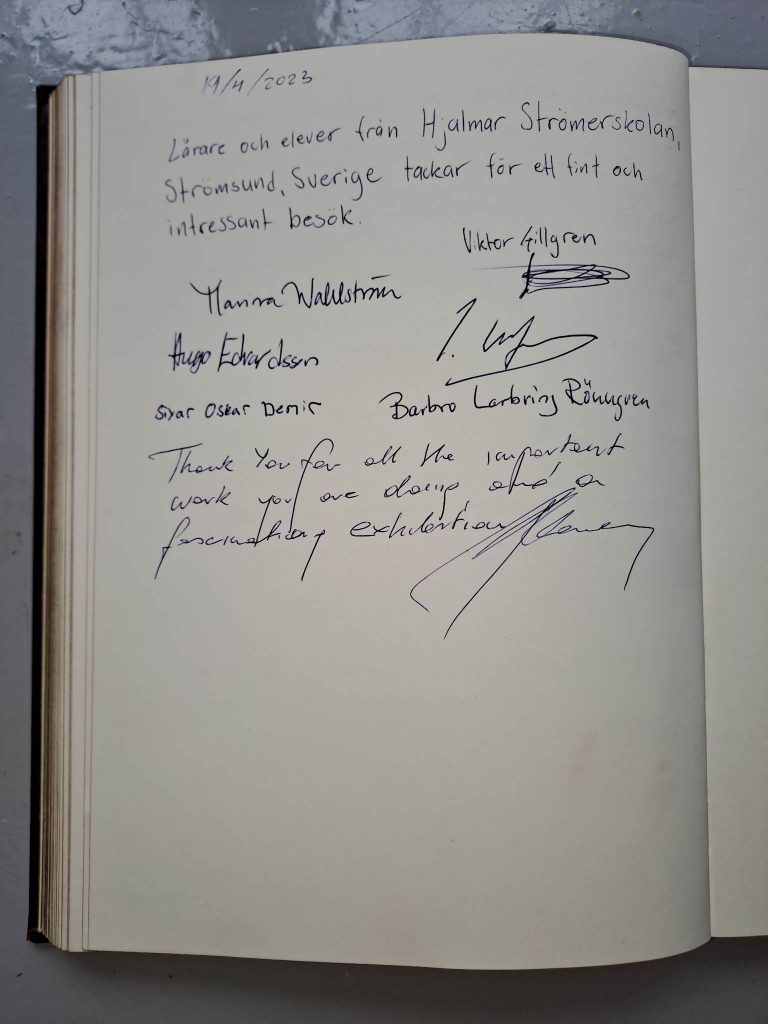 19/4/2023
Lärare och elever från Hjalmar Strömerskolan,
Strömsund, Sverige tackar för ett fint och
intressant besök.
Viktor Gillgren
Wahlström
Hugo Edvardsson
Siyar Oskar Demir
Barbro Larbring Rönngren
Thank You for all the important
work you are doing and a
fascinating exhibition